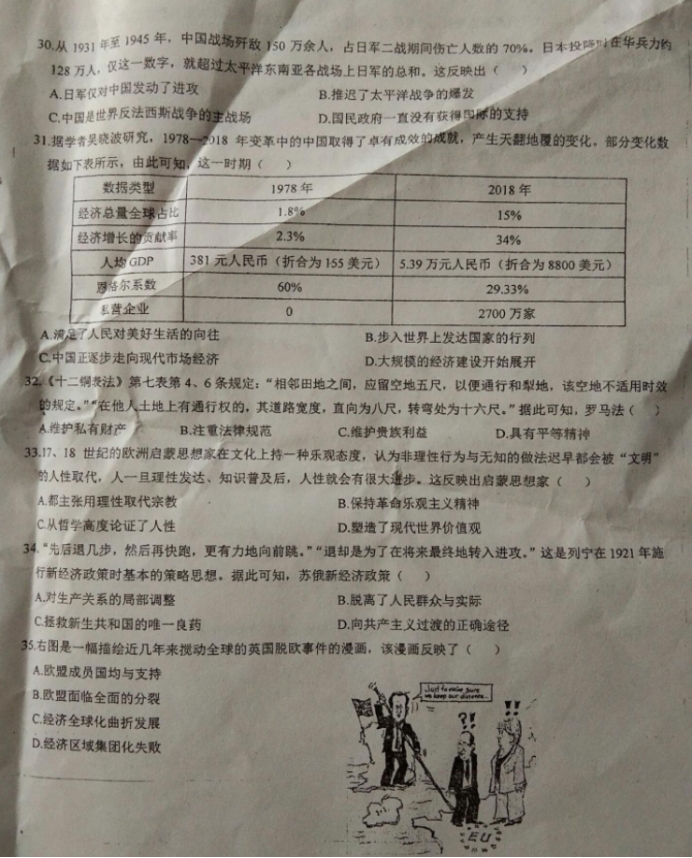 30.从 1931 年至 1945 年，中国战场歼敌 150 万余人，占日军二战期间伤亡人数的 70%。日本投降时在华兵力约
128 万人，仅这一数字，就超过太平洋东南亚各战场上日军的总和。这反映出（    ）
A.日军仅对中国发动了进攻	B.推迟了太平洋战争的爆发
C.中国是世界反法西斯战争的主战场	D.国民政府一直没有获得国际的支持
31.据学者吴晓波研究，1978—2018 年变革中的中国取得了卓有成效的成就，产生天翻地覆的变化，部分变化数
据如下表所示，由此可知，这一时期（    ）
数据类型	1978 年	2018 年
经济总量全球占比	1.8%	15%
经济增长的贡献率	2.3%	34%
人均 GDP	381 元人民币（折合为 155 美元）	5.39 万元人民币（折合为 8800 美元）
恩格尔系数	60%	29.33%
私营企业	0	2700 万家
A.满足了人民对美好生活的向往	B.步入世界上发达国家的行列
C.中国正逐步走向现代市场经济	D.大规模的经济建设开始展开
32.《十二铜表法》第七表第 4、6 条规定：“相邻田地之间，应留空地五尺，以便通行和犁地，该空地不适用时效
的规定。”“在他人土地上有通行权的，其道路宽度，直向为八尺，转弯处为十六尺。”据此可知，罗马法（    ）
A.维护私有财产	B.注重法律规范	C.维护贵族利益	D.具有平等精神
33.17、18 世纪的欧洲启蒙思想家在文化上持一种乐观态度，认为非理性行为与无知的做法迟早都会被“文明”
的人性取代，人一旦理性发达、知识普及后，人性就会有很大进步。这反映出启蒙思想家（    ）
A.都主张用理性取代宗教	B.保持革命乐观主义精神
C.从哲学高度论证了人性	D.塑造了现代世界价值观
34.“先后退几步，然后再快跑，更有力地向前跳。”“退却是为了在将来最终地转入进攻。”这是列宁在 1921 年施
行新经济政策时基本的策略思想。据此可知，苏俄新经济政策（    ）
A.对生产关系的局部调整	B.脱离了人民群众与实际
C.拯救新生共和国的唯一良药	D.向共产主义过渡的正确途径
35.右图是一幅描绘近几年来搅动全球的英国脱欧事件的漫画，该漫画反映了（    ）
A.欧盟成员国均与支持
B.欧盟面临全面的分裂
C.经济全球化曲折发展
D.经济区域集团化失败
Just to make sure
we keep our distance..
?!
!!
EU